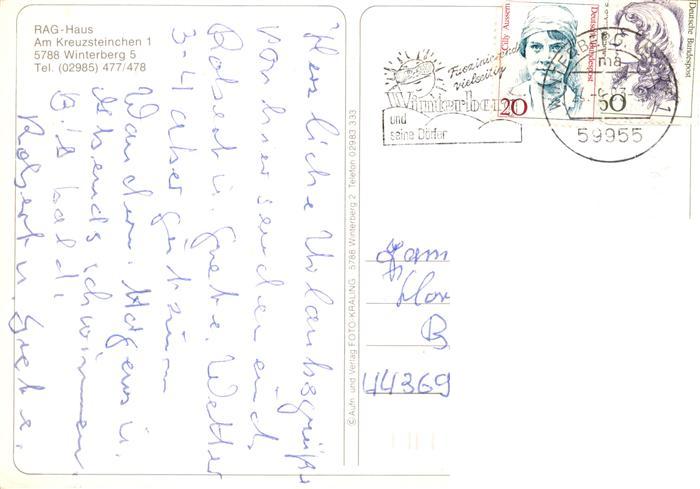 RAG-Haus
Am Kreuzsteinchen 1
5788 Winterberg 5
Tel. (02985) 477/478
Herzliche Urlaubsgrüße
von hier senden euch
Robert u. Grete. Wetter
3-4 aber gut zum
Wandern. Morgens u.
Abends schwimmen
Bis bald!
Robert u. Grete.
© Aufn. und Verlag FOTO-KRALING 5788 Winterberg 2 Telefon 02983 333
Faszinierend
vielseitig
Winterberg
und
seine Dörfer
Cilly Aussem
Deutsche Bundespost
20
Deutsche Bundespost
50
59955
1
Fam
Hor
B
44369